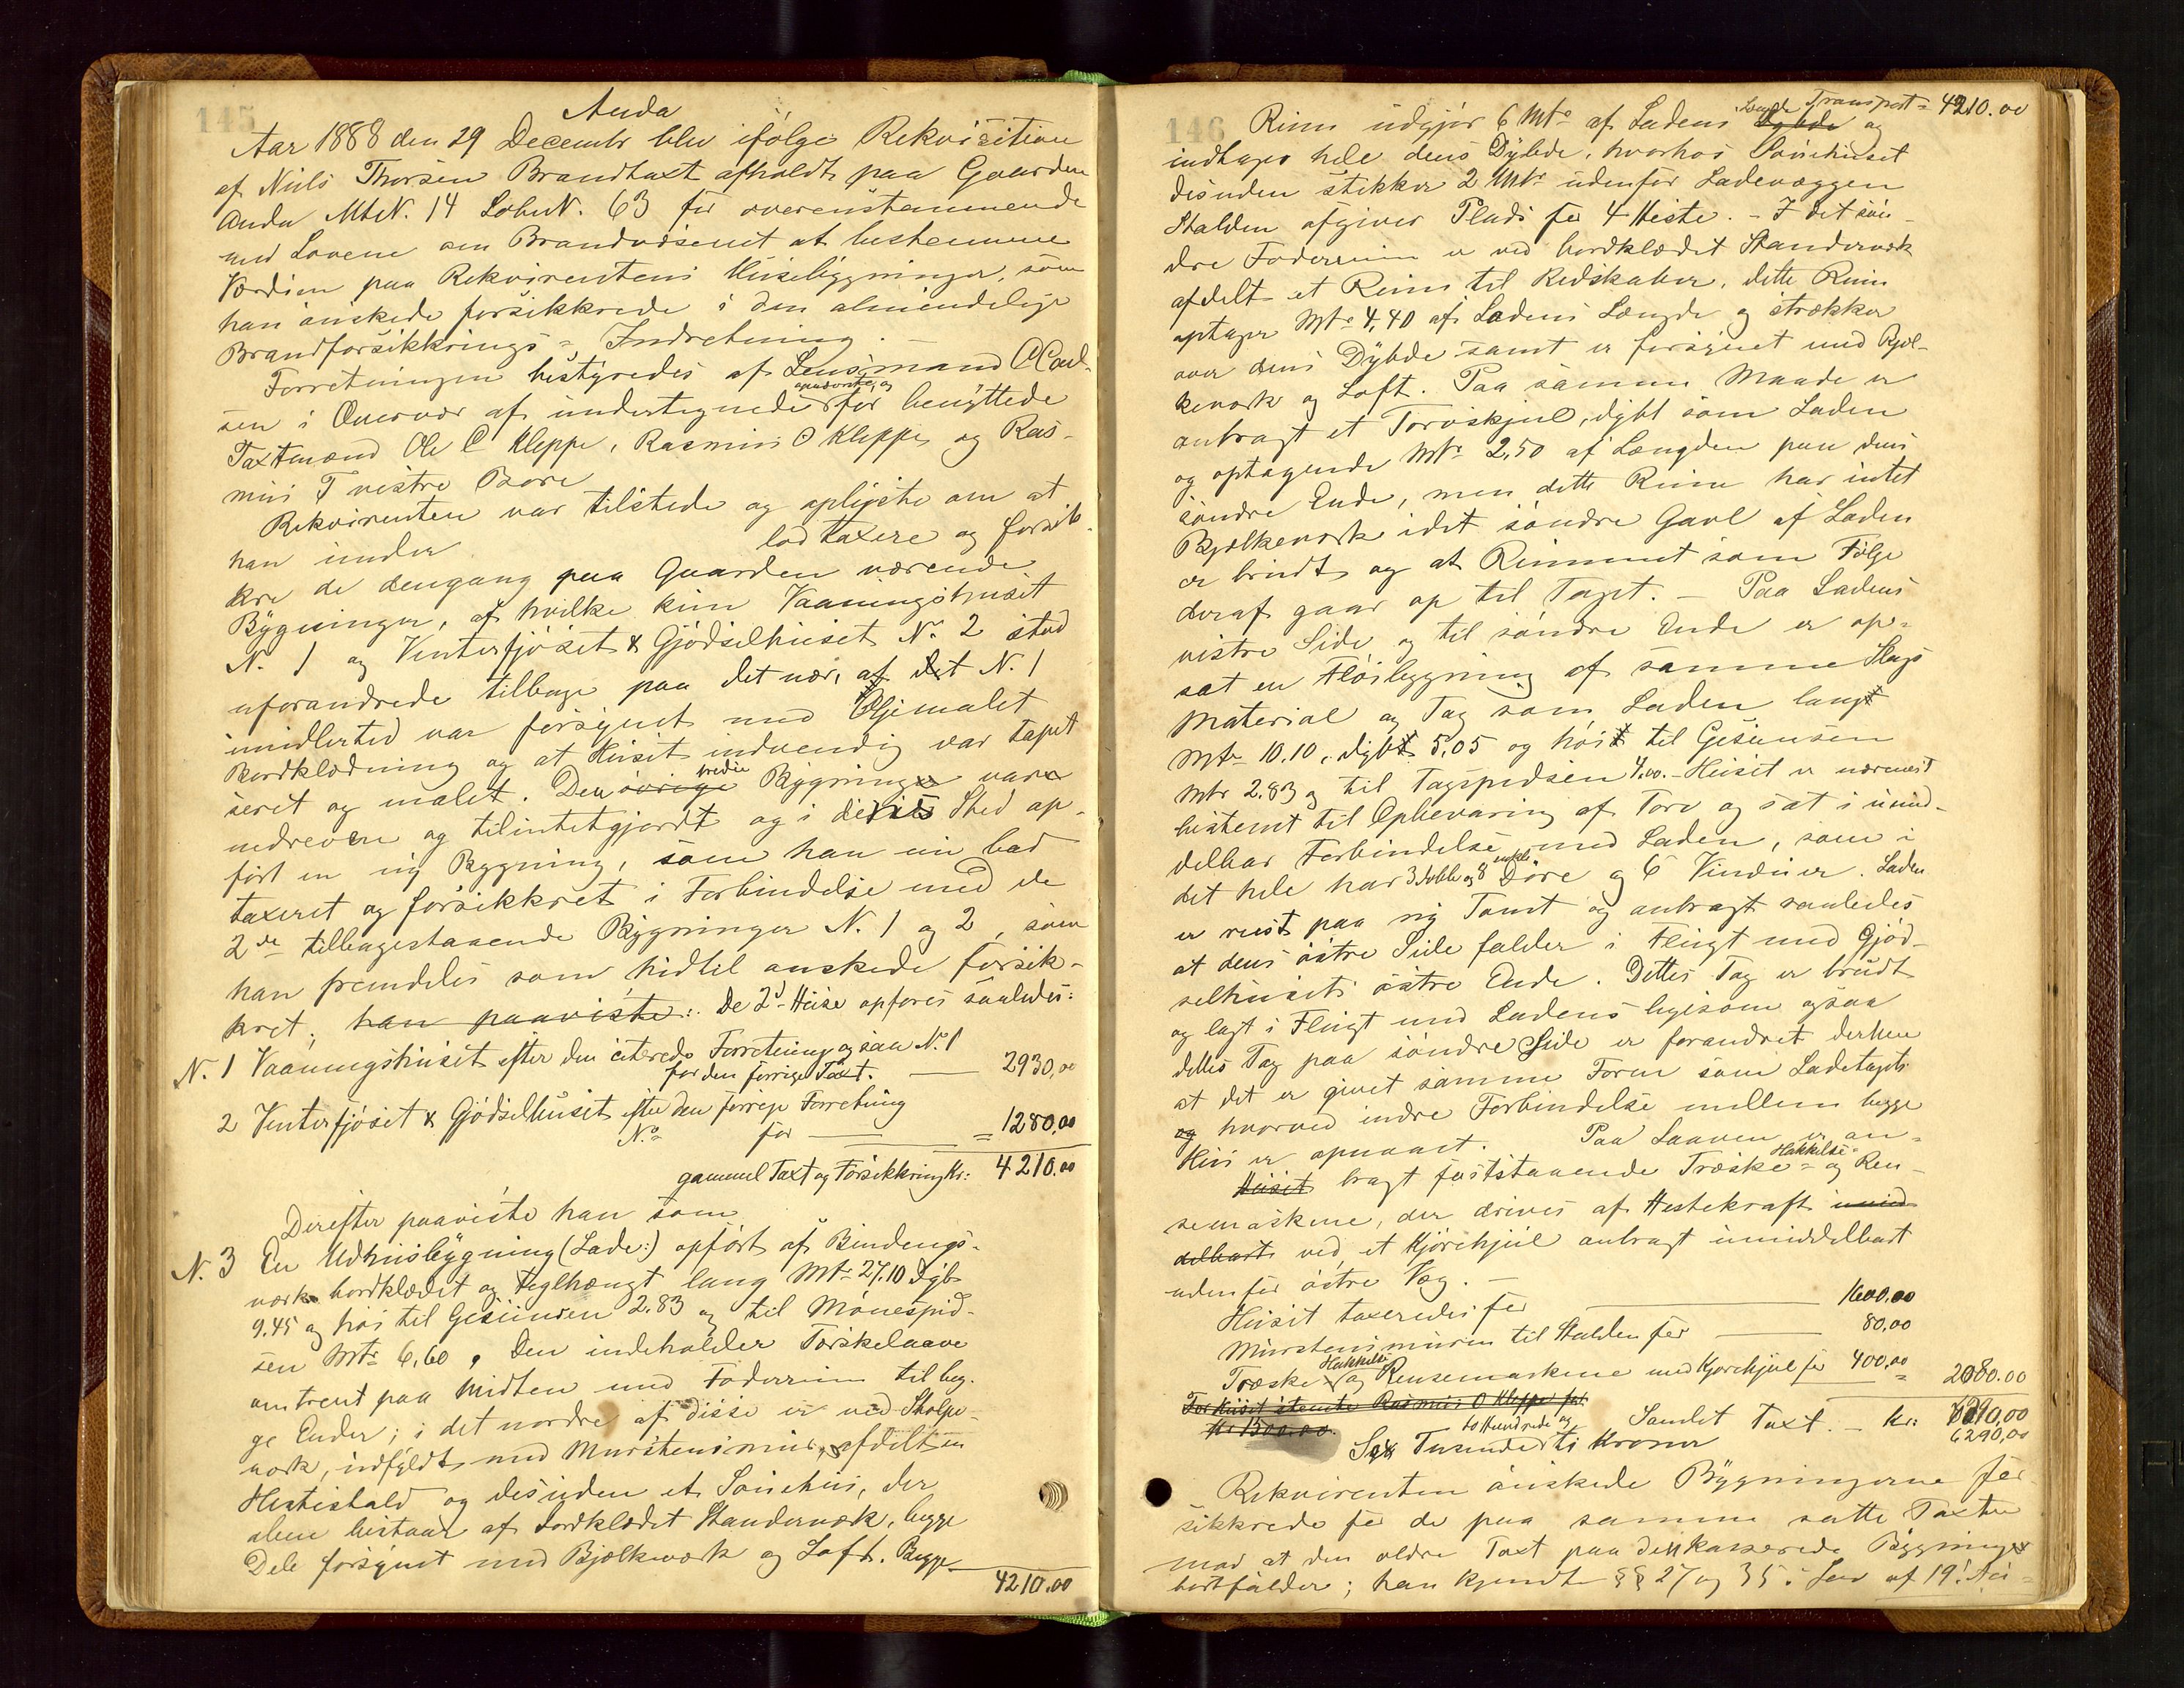 145
Anda
Aar 1888 den 29 Decembr blev ifølge Rekvisition
af Niels Thorsen Brandtaxt afholdt paa Gaarden
Anda MtN. 14 LøbeN. 63 for overenstemmende
med Lovene om Brandvæsenet at bestemme
Værdien paa Rekvirentens Huusbygninger, som
han ønskede forsikkrede i den almindelige
Brandforsikkrings- Indretning. -
Forretningen bestyredes af Lensmand
sen i af undertegnede opnævnte, og før benyttede
Taxtmænd Ole C Kleppe, Rasmus O Kleppe og Ras-
mus T vestre Bore
Rekvirenten var tilstede og oplyste om at
han under lod taxere og forsik-
kre de dengang paa Gaarden værende
Bygninger, af hvilke kun Vaaningshuset
N. 1 og Vinterfjøset & Gjødselhuset N. 2 stod
uforandrede tilbage paa det nær, at det N. 1
imidlertid var forsynet med Oljemalet
Bordklædning og at Huset indvendig var tapet
seret og malet. Den øvrige tredie Bygninger vare
nedreven og tilintetgjordt og i dets Sted op-
ført en ny Bygning, som han nu bad
taxeret og forsikkret i Forbindelse med de
2de tilbagestaaende Bygninger N. 1 og 2, som
han fremdeles som hidtil ønskede forsik-
kret; han paaviste: De 2d Huse opføres saaledes:
N. 1 Vaaningshuset efter den citerede Forretning ogsaa N. 1
for den forrige Taxt. — 2930,00
2 Vinterfjøset & Gjødselhuset efter den forrige Forretning
N. 2 for — = 1280,00
gammel Taxt og Forsikkring Kr: 4210.00
Derefter paaviste han som
N. 3 En Udhusbygning (Lade:) opført af Bindings-
værk bordklædet og teglhængt lang Mtr 27.10 dyb
9.45 og høi til Gesimsen 2.83 og til Mønespid-
sen Mtr 6,60, Den indeholder Tærskelaave
omtrent paa Midten med Foderrum til beg-
ge Ender; i det nordre af disse er ved Stolpe-
værk, indfyldt med Murstensmur, afdelt en
Hestestald og desuden et Sauehus, der
alene bestaar af bordklædet Standerværk, begge
Dele forsynet med Bjælkværk og Loft. Begge
4210.00
146
Transport = 4210.00
Rum udgjør 6 Mtr af Ladens Dybde Længde og
indtager hele dens Dybde, hvorhos Sauehuset
desuden stikker 2 Mtr udenfor Ladevæggen
Stalden afgiver Plads for 4 Heste. - I det søn-
dre Foderrum er ved bordklædet Standerværk
afdelt et Rum til Redskaber, dette Rum
optager Mtr 4,40 af Ladens Længde og strækker
over dens Dybde samt er forsynet med Bjæl-
keværk og Loft. Paa samme Maade er
anbragt et Torvskjul, dybt som Laden
og optagende Mtr 2,50 af Længden paa dens
søndre Ende, men dette Rum har intet
Bjælkeværk idet søndre Gavl af Laden
er brudt og at Rummet som Følge
deraf gaar op til Taget. - Paa Ladens
vestre Side og til søndre Ende er op-
sat en Fløibygning af samme Slags
Material og Tag som Laden langt
Mtr 10.10, dybt 5,05 og høit til Gesimsen
Mtr 2.83 og til Tagspidsen 4.00. - Huset er nærmest
bestemt til Opbevaring af Torv og sat i umid-
delbar Forbindelse med Laden, som i
det hele har 3 doble og 8 enkele Døre og 6 Vinduer. Laden
er reist paa ny Tomt og anbragt saaledes
at dens østre Side falder i Flugt med Gjød-
selhusets østre Ende. Dettes Tag er brudt
og lagt i Flugt med Ladens ligesom ogsaa
dettes Tag paa søndre Side er forandret derhen
at det er givet samme Form som Ladetaget
og hvorved indre Forbindelse mellem begge
Hus er opnaaet. Paa Laaven er an-
Huset bragt faststaaende Træske- Hakkelse- og Ren-
semaskine, der drives af Hestekraft umid
delbart ved et Kjørehjul anbragt umiddelbart
udenfor østre Væg. -
Huset taxeredes for — 1600.00
Murstensmuren til Stalden for — 80,00
Træske- Hakkelse og Rensemaskine med Kjørehjul for 400,00 = 2080.00
For Huset stemte Rasmus O Kleppe for
Kr 1500.00.
Samlet Taxt. - Kr: 6290,00
6290,00
Sex Tusinde to Hundrede og ti Kroner
Rekvirenten ønskede Bygningerne for-
sikkrede for de paa samme satte Taxter
mod at den ældre Taxt paa den kasserede Bygning
bortfalder; han kjendte §§ 27 og 35 i Lov af 19. Au-